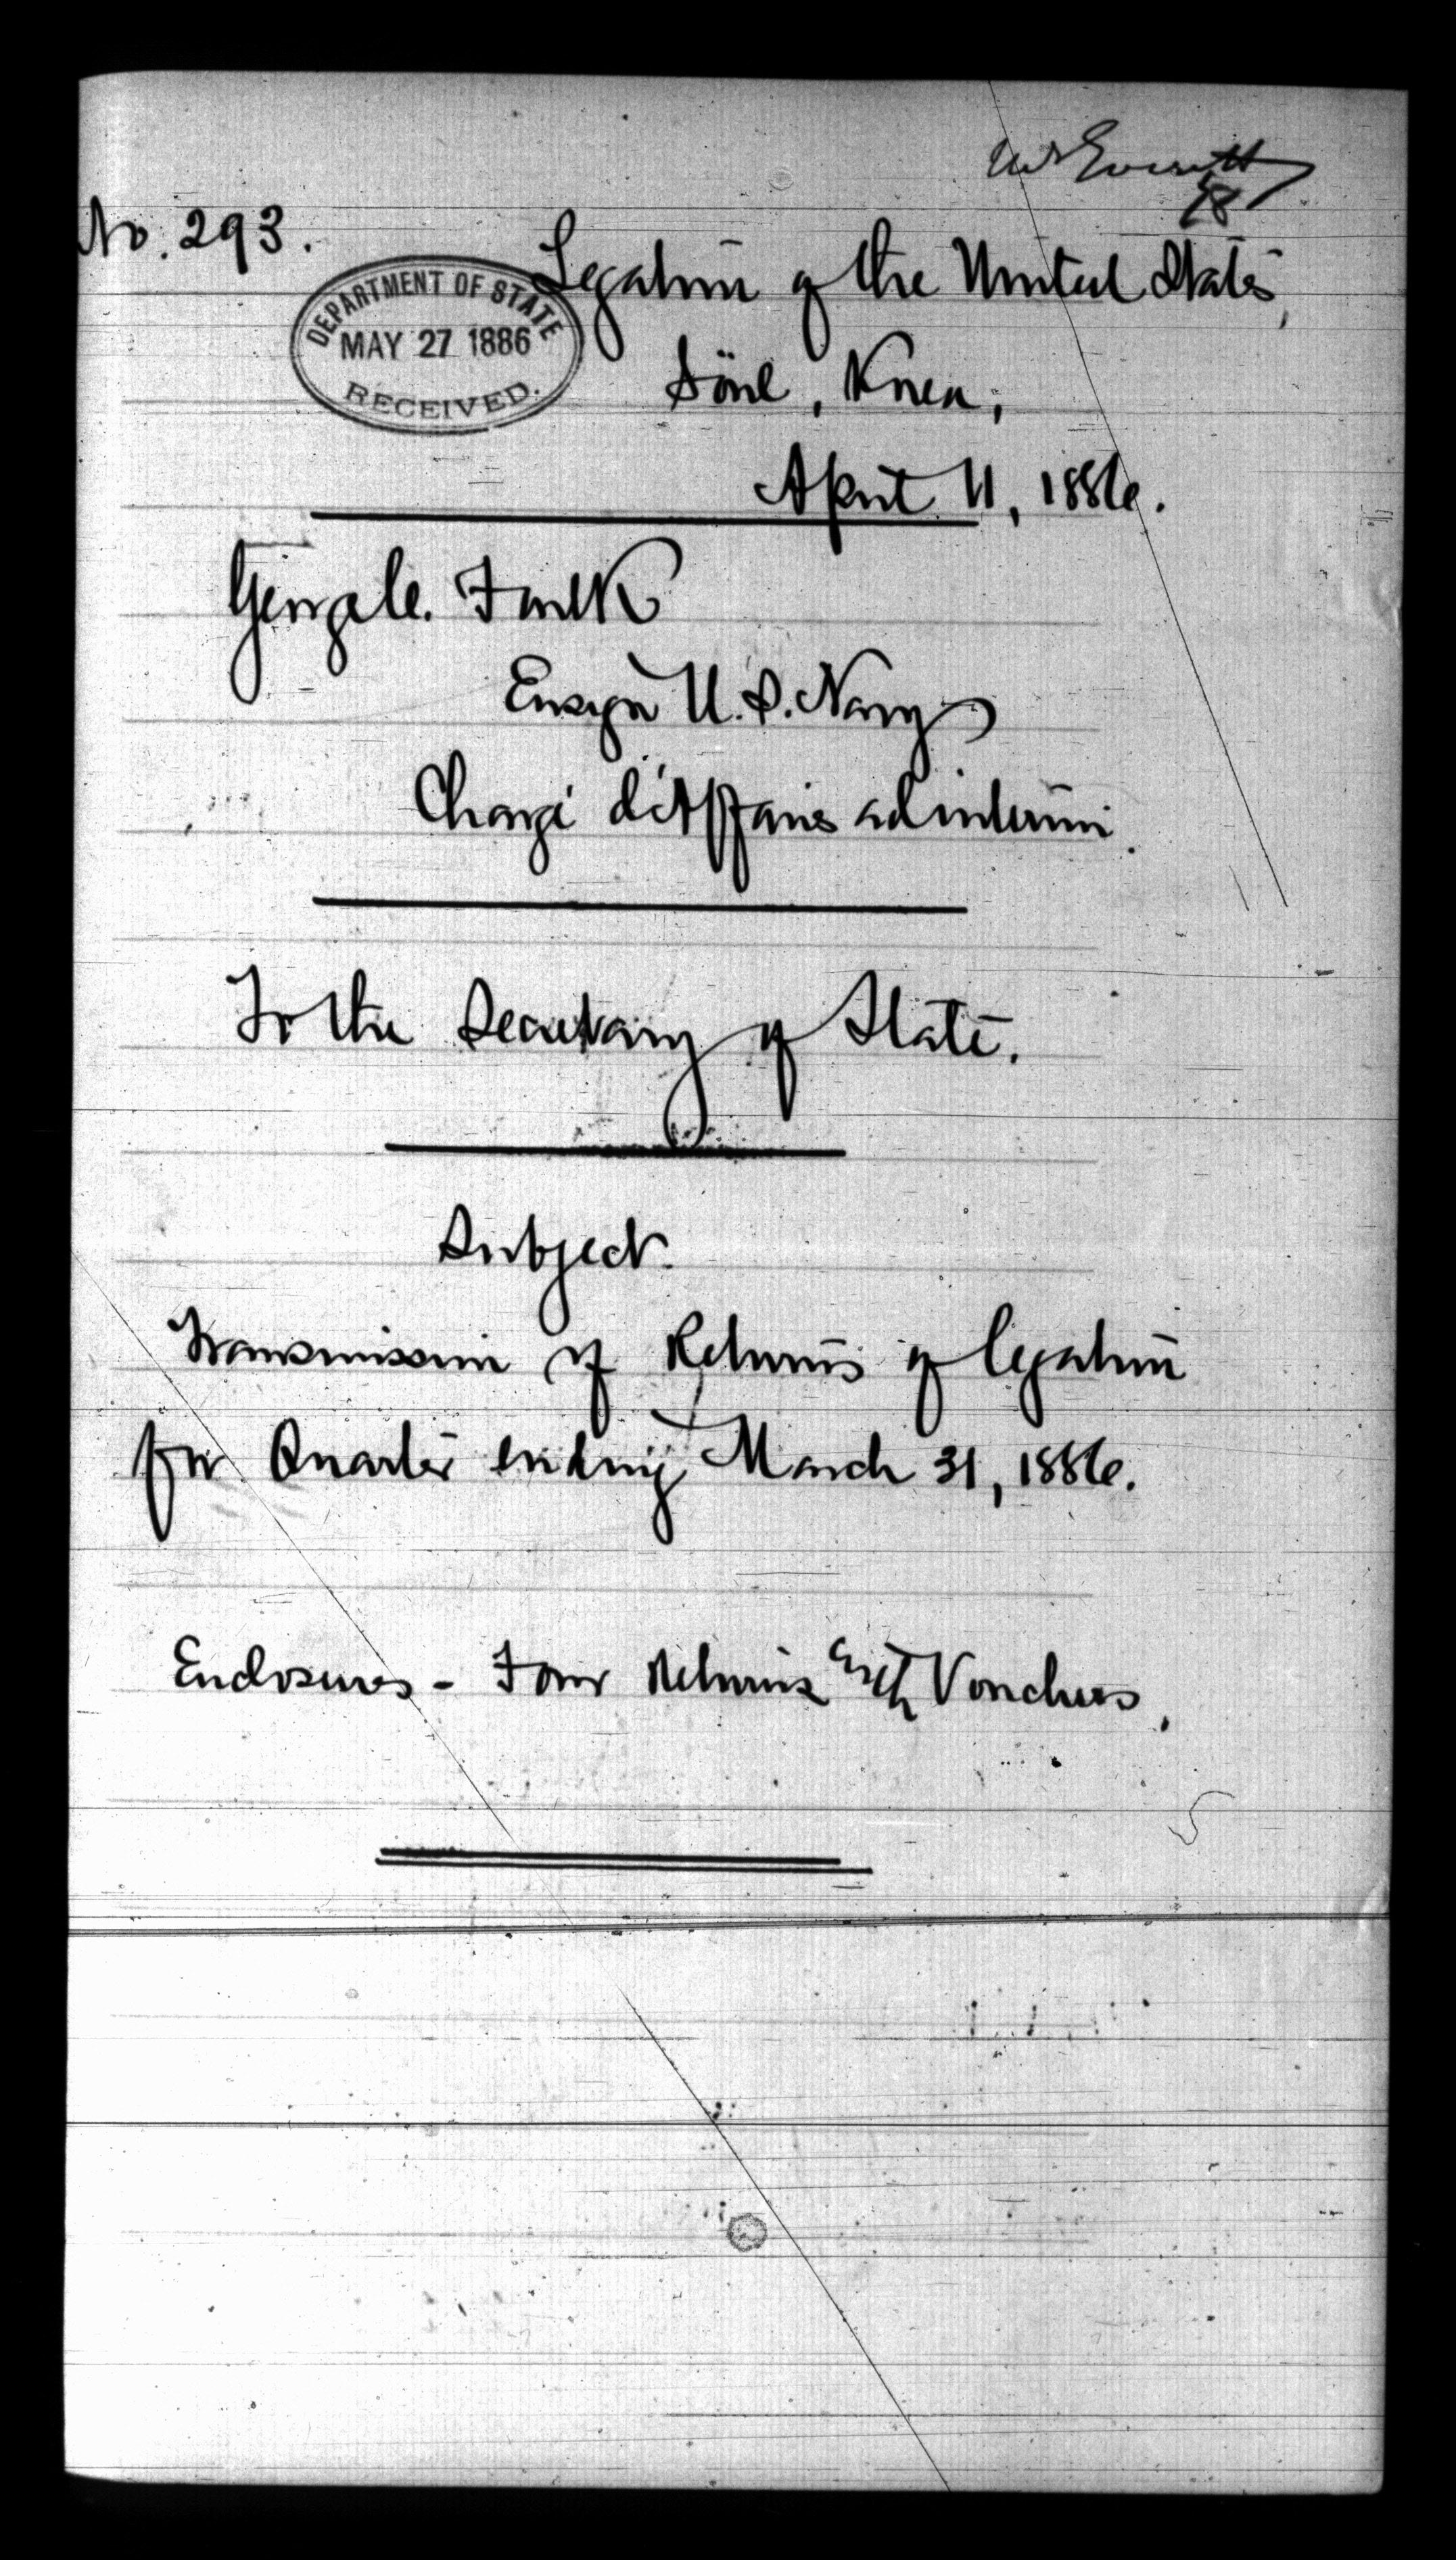 Mr Everett
No. 293.
Legation of the United States,
DEPARTMENT OF STATE
MAY 27 1886
RECEIVED.
Söul, Korea,
April 11, 1886.
George C. Foulk
Ensign U.S. Navy
Chargé d'Affaires ad interim.
To the Secretary of State.
Subject.
Transmission of Returns of Legation
for Quarter ending March 31, 1886.
Enclosures - Four Returns with Vouchers.